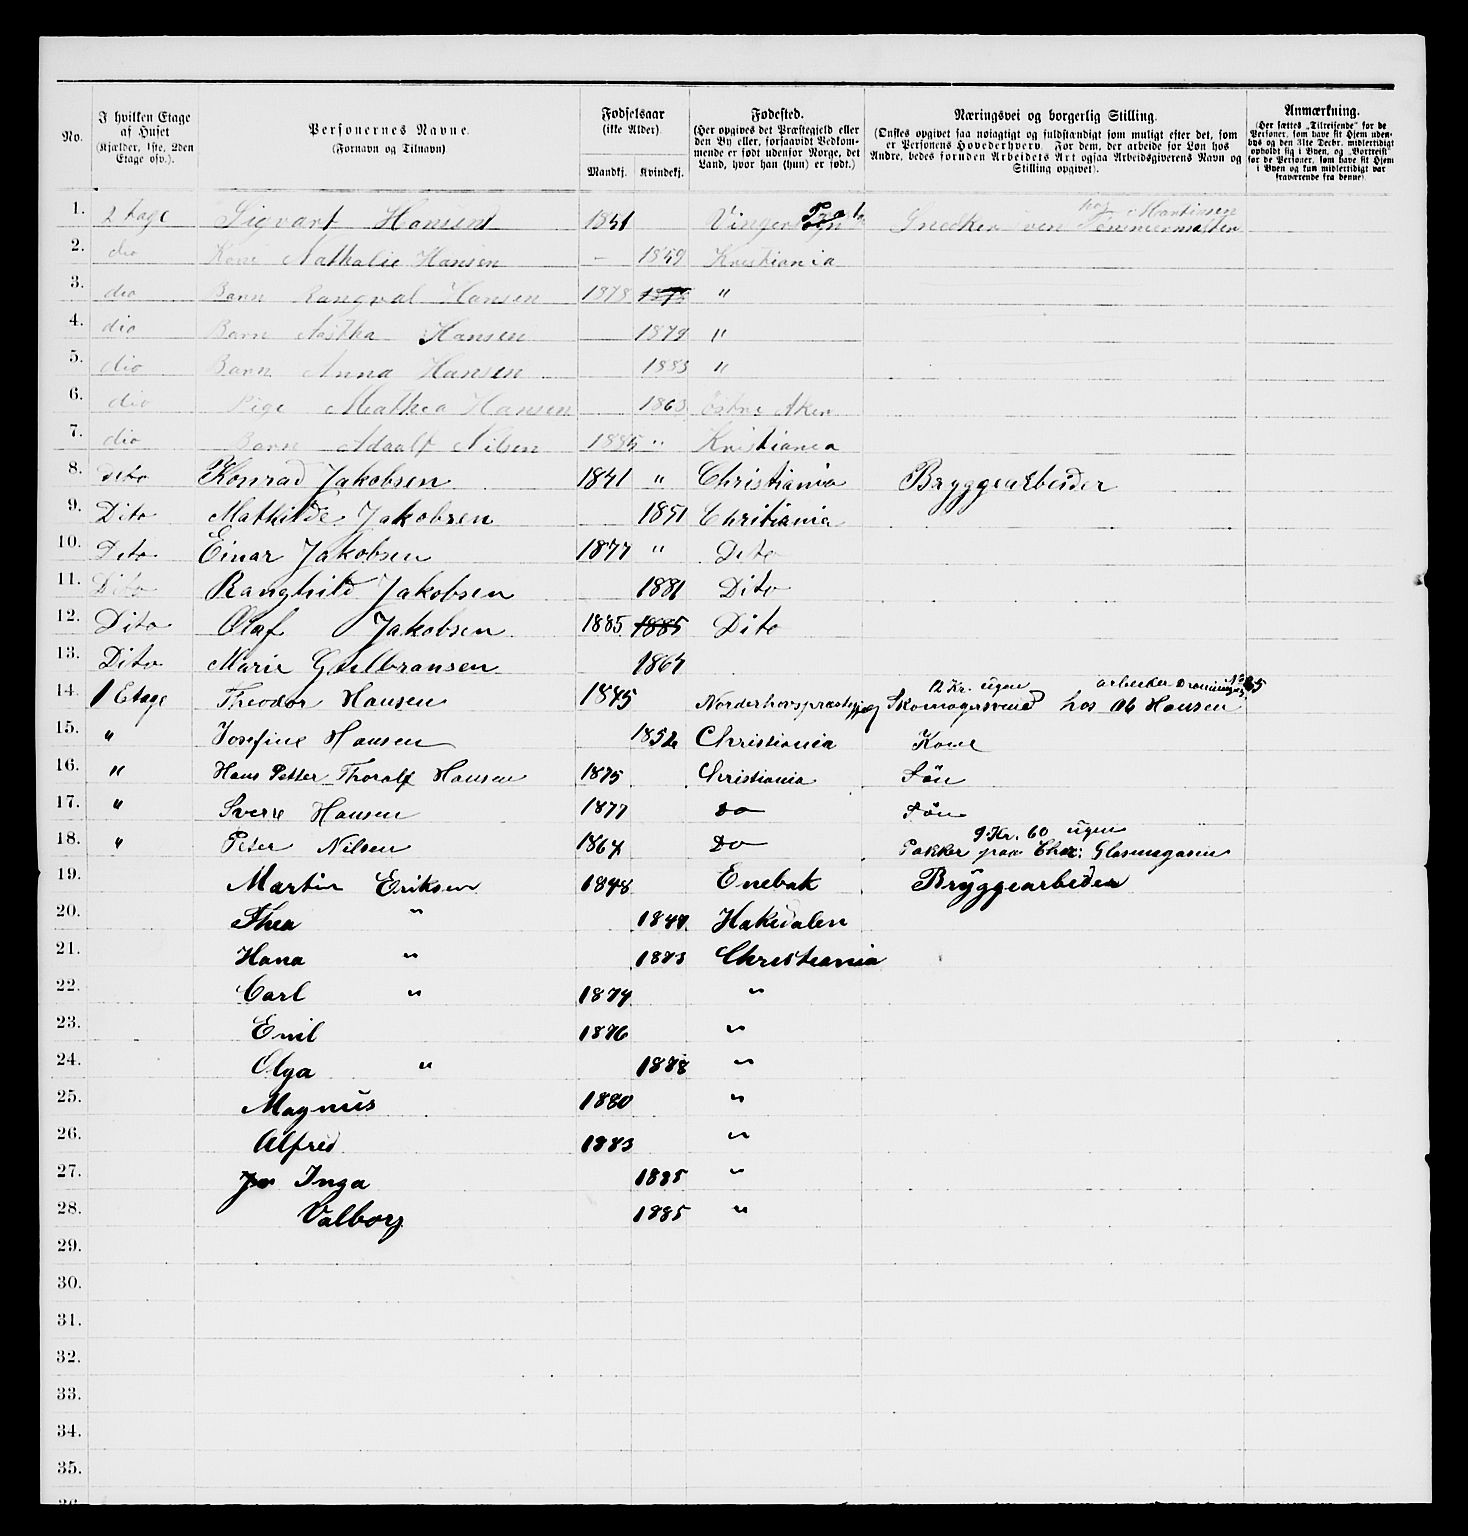 No. | I hvilken Etage af Huset (Kjælder, 1ste, 2den Etage osv.). | Personernes Navne. (Fornavn og Tilnavn) | Fødselsaar (ikke Alder) Mandkj. | Kvindekj. | Fødested. (Her opgives det Præstegjeld eller den By eller, forsaavidt Vedkommende er født udenfor Norge, det Land, hvor han (hun) er født.) | Næringsvei og borgerlig Stilling. (Ønskes opgivet saa nøiagtigt og fuldstændigt som muligt efter det, som er Personens Hovederhverv. For dem, der arbeide for Løn hos Andre, bedes foruden Arbeidets Art ogsaa Arbeidsgiverens Navn og Stilling opgivet). | Anmærkning. (Her sættes „Tilreisende" for de Personer, som have sit Hjem udenbys og den 31te Decbr. midlertidigt opholdt sig i Byen, og „Bortreist" for de Personer, som have sit Hjem i Byen og kun midlertidigt var fraværende fra denne)
1. | 2 tage | Sigvart Hansen | 1851 | | Vinger | Snedkersven hos Martinsen
2. | dio | Kone Nathalie Hansen | – | 1859 | Kristiania
3. | dio | Barn Rangval Hansen | 1878 | 1878 | "
4. | dio | Barn Hansen | | 1879 | "
5. | dio | Barn Anna Hansen | | 1883 | "
6. | dio | Pige Mathea Hansen | | 1863 | østre Aker
7. | dio | Barn Adaalf Nilsen | 1885 | " | Kristiania
8. | Dito | Konrad Jakobsen | 1841 | " | Christiania | Bryggearbeider
9. | Dito | Mathilde Jakobsen | | 1851 | Chritiania
10. | Dito | Einar Jakobsen | 1877 | " | Dito
11. | Dito | Ranghild Jakobsen | | 1881 | Dito
12. | Dito | Olaf Jakobsen | 1885 | 1885 | Dito
13. | Dito | Marie Gulbransen | | 1867
14. | 1 Etage | Theodor Hansen | 1845 | | Norderhovspræstegj | Skomagersvend hos Hansen 12 Kr. ugen arbeider
15. | " | Josefine Hansen | | 1852 | Christiania | Kone
16. | " | Hans Petter Thoralf Hansen | 1875 | | Christiania | Søn
17. | " | Sverre Hansen | 1877 | | Do | Søn
18. | " | Peter Nilsen | 1867 | | Do | Pakker paa Chra: Glasmagasin 9 Kr. 60 ugen
19. | | Martin Eriksen | 1848 | | Enebak | Bryggearbeider
20. | | Thea " | | 1844 | Hakedalen
21. | | Hana " | | 1873 | Christiania
22. | | Carl " | 1874 | | "
23. | | Emil | 1876 | | "
24. | | Olga " | | 1878 | "
25. | | Magnus | 1880 | | "
26. | | Alfred | 1883 | | "
27. | | Inga | | 1885 | "
28. | | Valborg | | 1885 | "
29.
30.
31.
32.
33.
34.
35.